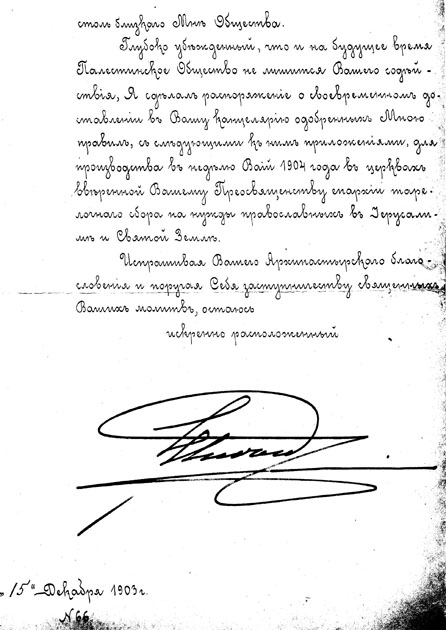 столь близкаго Мнѣ Общества.
Глубоко убѣжденный, что и на будущее время
Палестинское Общество не лишится Вашего содѣй-
ствія, Я сдѣлалъ распоряженіе о своевременномъ до-
ставленіи въ Вашу канцелярію одобренныхъ Мною
правилъ, съ слѣдующими къ нимъ приложеніями, для
производства въ недѣлю Ваій 1904 года въ церквахъ
ввѣренной Вашему Преосвященству епархіи таре-
лочнаго сбора на нужды православныхъ въ Іерусали-
мѣ и Святой Землѣ.
Испрашивая Вашего Архипастырскаго благо-
словенія и поручая Себя заступничеству священныхъ
Вашихъ молитвъ, остаюсь
искренно расположенный
15го Декабря 1903 г.
N 66